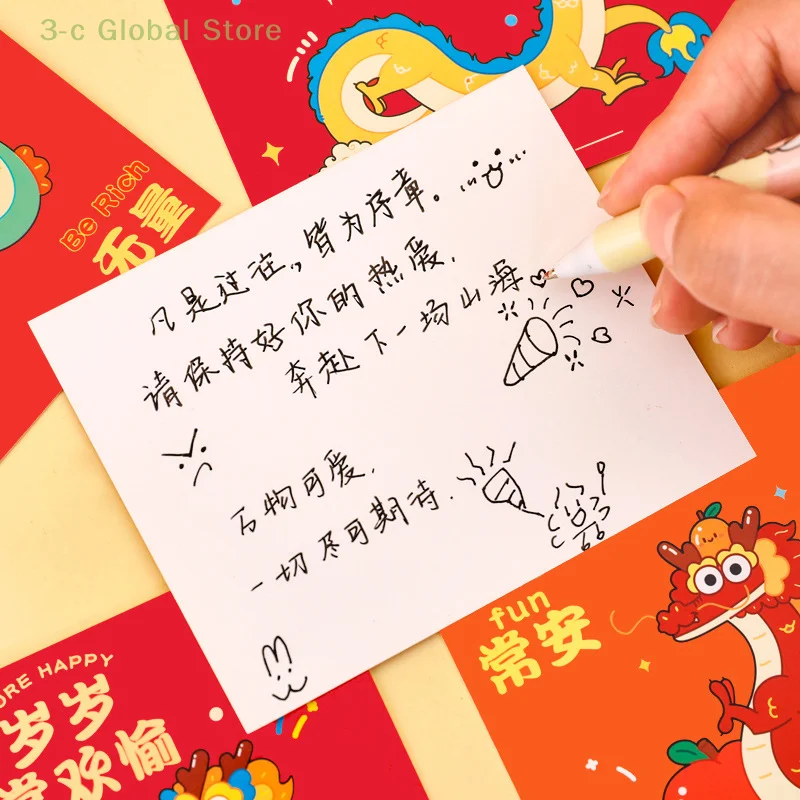 3-c Global Store
Be Rich
无量
凡是过往，皆为序章。
请保持好你的热爱，
奔赴下一场山海
万物可爱，
一切尽可期待.
fun
常安
ORE HAPPY
岁岁
常欢愉